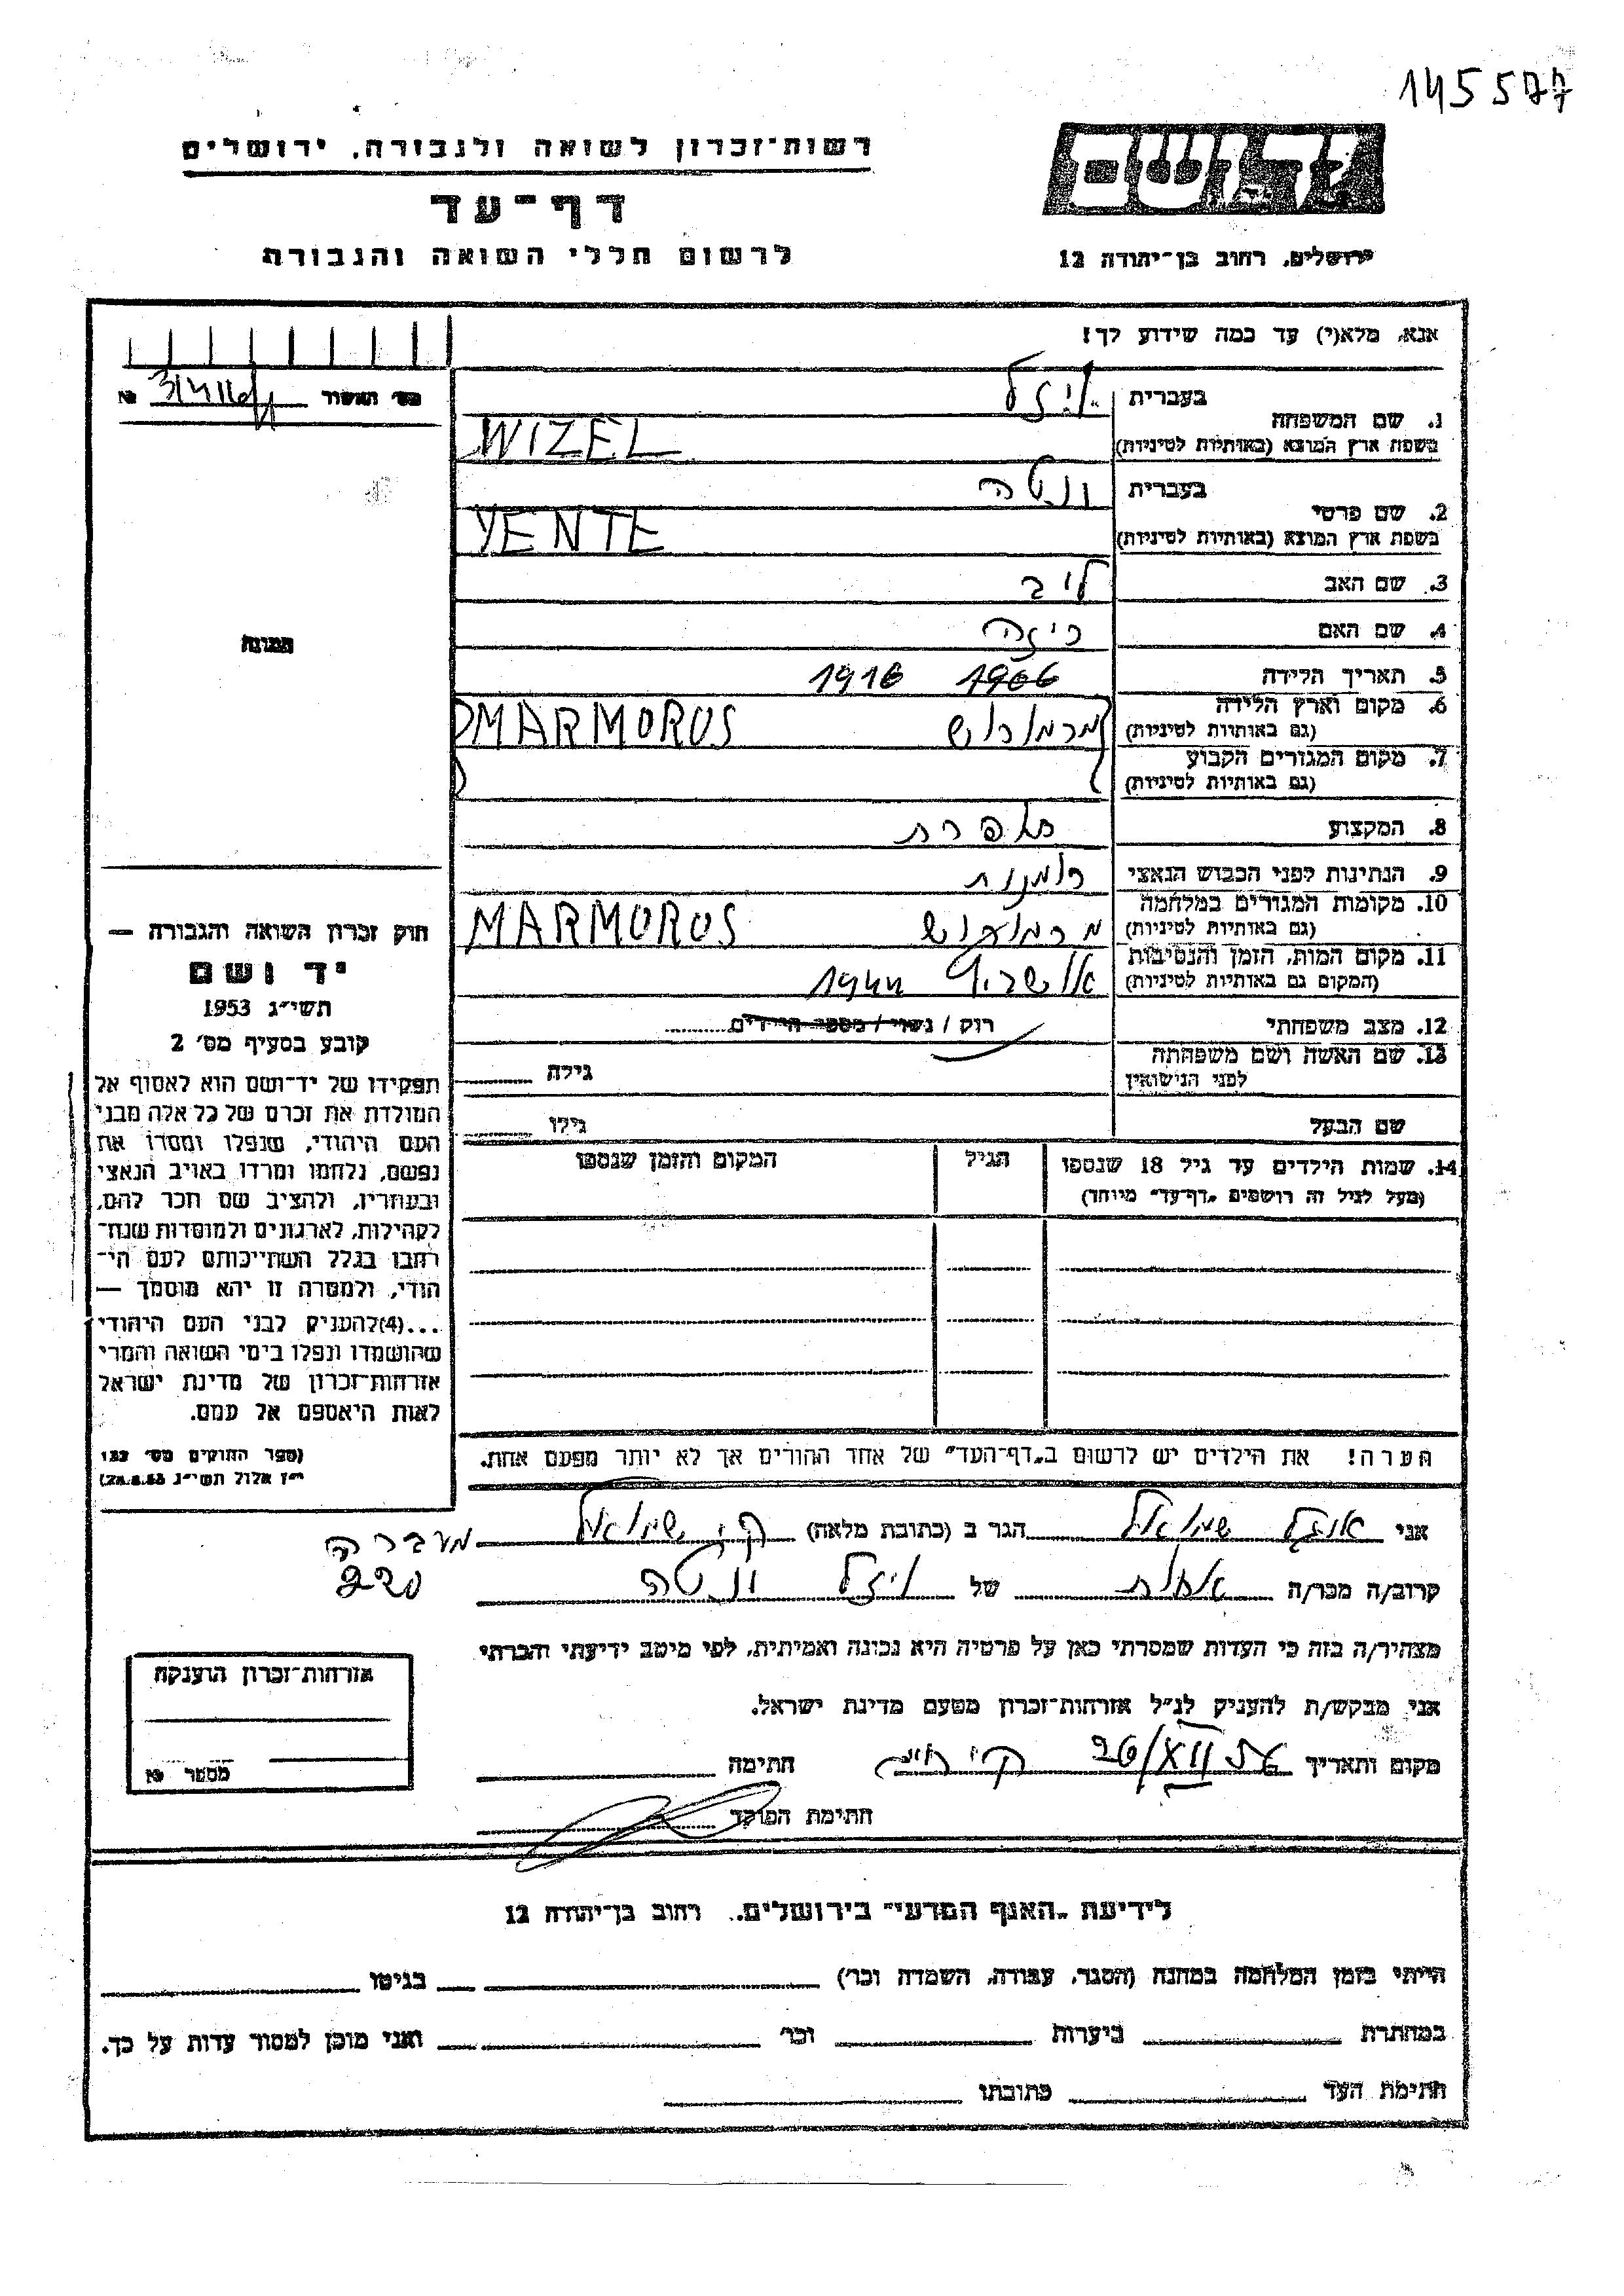 145577
רשות־זכרון לשואה ולגבורה, ירושלים
דף־עד
לרשום חללי השואה והגבורה
ירושלים, רחוב בן־יהודה 12
אנא, מלא(י) עד כמה שידוע לך!
מס׳ האשור №
1. שם המשפחה בעברית ויזל
בשפת ארץ המוצא (באותיות לטיניות) WIZEL
2. שם פרטי בעברית ינטה
בשפת ארץ המוצא (באותיות לטיניות) YENTE
3. שם האב ליב
4. שם האם רייזה
5. תאריך הלידה 1906 1916
6. מקום וארץ הלידה מרמורוש MARMOROS
(גם באותיות לטיניות)
7. מקום המגורים הקבוע
(גם באותיות לטיניות)
8. המקצוע תופרת
9. הנתינות לפני הכבוש הנאצי רומנית
10. מקומות המגורים במלחמה מרמורוש MARMOROS
(גם באותיות לטיניות)
11. מקום המות, הזמן והנסיבות אושויץ 1944
(המקום גם באותיות לטיניות)
12. מצב משפחתי רוק / נשוי / מספר הילדים
13. שם האשה ושם משפחתה גילה
לפני הנישואין
שם הבעל גילו
14. שמות הילדים עד גיל 18 שנספו הגיל המקום והזמן שנספו
(מעל לגיל זה רושמים „דף־עד״ מיוחד)
תמונה
חוק זכרון השואה והגבורה —
יד ושם
תשי״ג 1953
קובע בסעיף מס׳ 2
תפקידו של יד־ושם הוא לאסוף אל
המולדת את זכרם של כל אלה מבני
העם היהודי, שנפלו ומסרו את
נפשם, נלחמו ומרדו באויב הנאצי
ובעוזריו, ולהציב שם וזכר להם,
לקהילות, לארגונים ולמוסדות שנח־
רבו בגלל השתייכותם לעם הי־
הודי, ולמטרה זו יהא מוסמך —
...(4) להעניק לבני העם היהודי
שהושמדו ונפלו בימי השואה והמרי
אזרחות־זכרון של מדינת ישראל
לאות היאספם אל עמם.
(ספר החוקים מס׳ 132
י״ז אלול תשי״ג 28.8.53)
הערה! את הילדים יש לרשום ב„דף־העד״ של אחד ההורים אך לא יותר מפעם אחת.
אני שמואל הגר ב (כתובת מלאה) קרית שמואל מעברה
קרוב/ה מכר/ה אחות של ויזל ינטה
מצהיר/ה בזה כי העדות שמסרתי כאן על פרטיה היא נכונה ואמיתית, לפי מיטב ידיעתי והכרתי
אני מבקש/ת להעניק לנ״ל אזרחות־זכרון מטעם מדינת ישראל.
מקום ותאריך 26/XII חתימה
חתימת הפוקד
אזרחות־זכרון הוענקה
מספר №
לידיעת „האגף המדעי״ בירושלים, רחוב בן־יהודה 12
הייתי בזמן המלחמה במחנה (הסגר, עבודה, השמדה וכו׳) בגיטו
במחתרת ביערות וכו׳ ואני מוכן למסור עדות על כך.
חתימת העד כתובתו